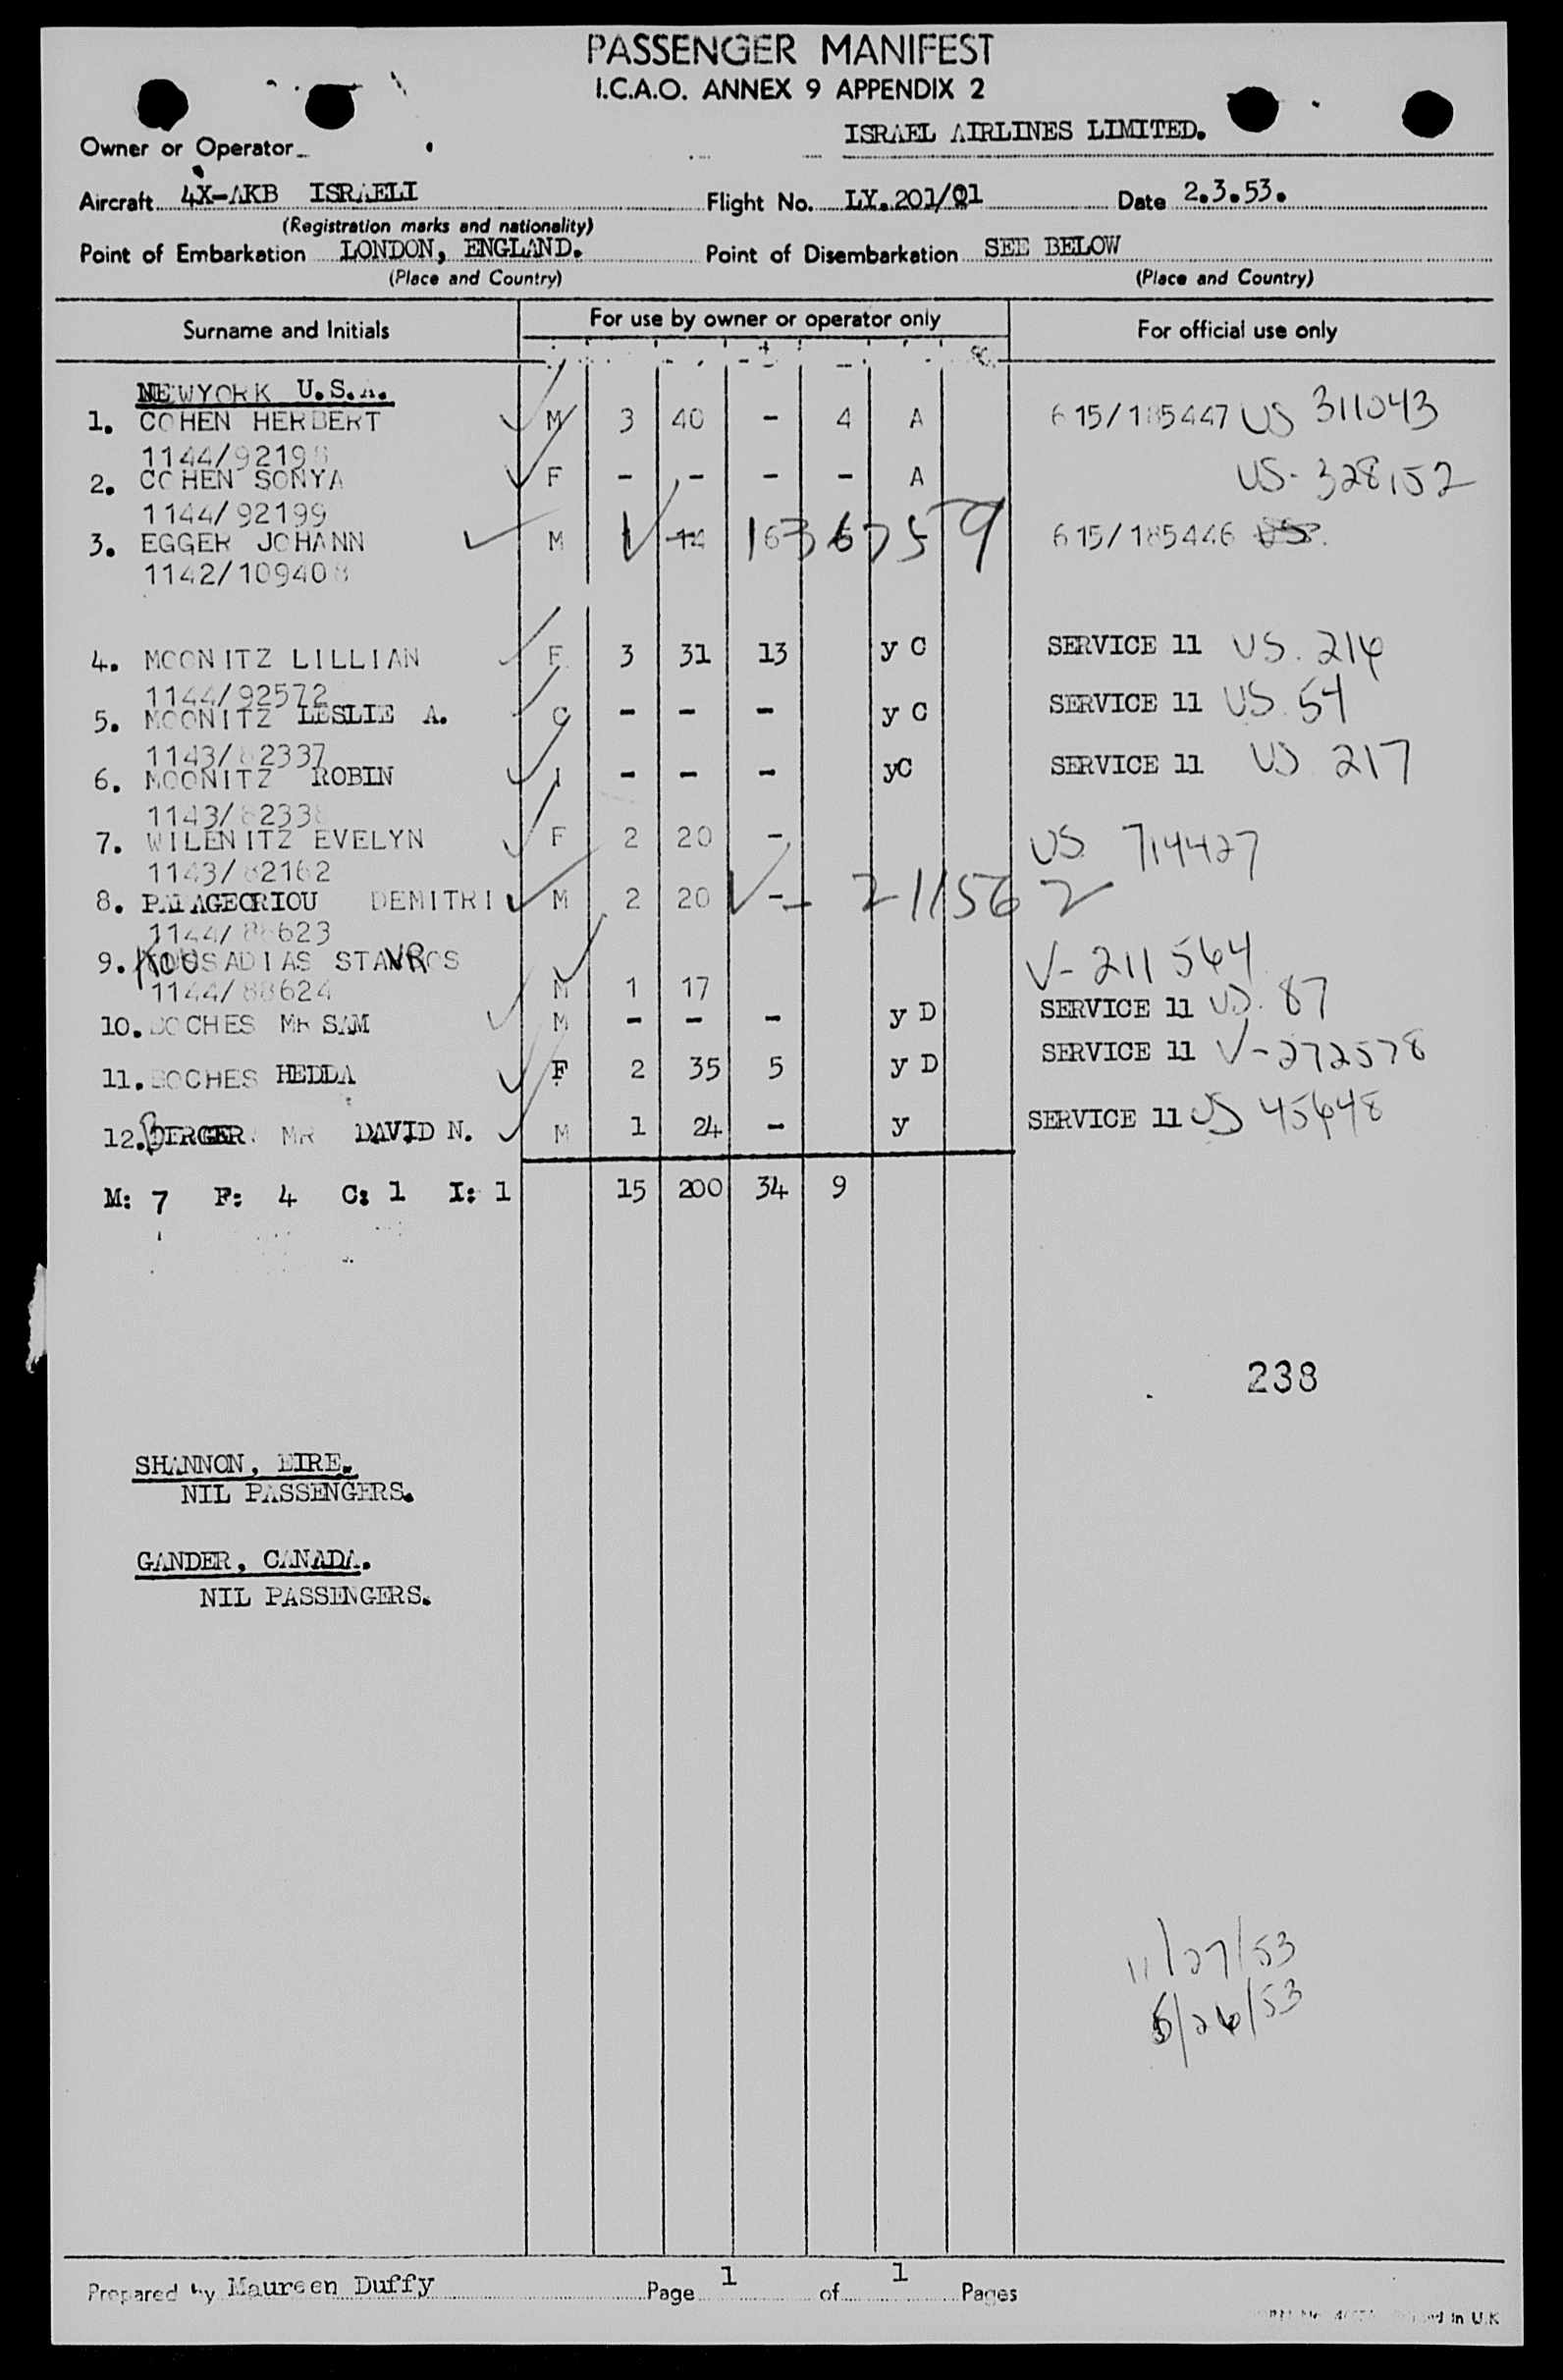 PASSENGER MANIFEST
I.C.A.O. ANNEX 9 APPENDIX 2
Owner or Operator ISRAEL AIRLINES LIMITED.
Aircraft 4X-AKB ISRAELI Flight No. LY.201/01 Date 2.3.53.
(Registration marks and nationality)
Point of Embarkation LONDON, ENGLAND. Point of Disembarkation SEE BELOW
(Place and Country) (Place and Country)
Surname and Initials For use by owner or operator only For official use only
NEWYORK U.S.A.
1. COHEN HERBERT M 3 40 - 4 A 615/185447 US 311043
1144/92198
2. COHEN SONYA F - - - - A US-328152
1144/92199
3. EGGER JOHANN M 1 14 615/185446
1142/109408
4. MOONITZ LILLIAN F 3 31 13 y C SERVICE 11 US. 216
1144/92572
5. MOONITZ LESLIE A. C - - - y C SERVICE 11 US 54
1143/82337
6. MOONITZ ROBIN I - - - yC SERVICE 11 US 217
1143/82338
7. WILENITZ EVELYN F 2 20 - US 714427
1143/82162
8. PAPAGEORIOU DEMITRI M 2 20 - V- 211562
1144/88623
9. KOUSADIAS STAVROS V-211564
1144/88624 M 1 17
10. BOCHES MR SAM M - - - y D SERVICE 11 US. 87
11. BOCHES HEDDA F 2 35 5 y D SERVICE 11 V-272578
12. BERGER MR DAVID N. M 1 24 - y SERVICE 11 US 45648
M: 7 F: 4 C: 1 I: 1 15 200 34 9
238
SHANNON, EIRE.
NIL PASSENGERS.
GANDER, CANADA.
NIL PASSENGERS.
11/27/53
5/26/53
Prepared by Maureen Duffy Page 1 of 1 Pages
in U.K